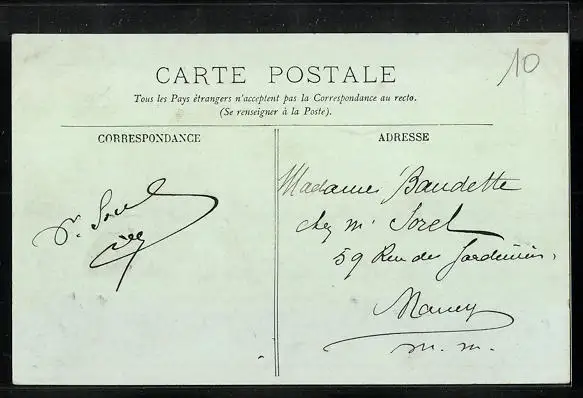 10
CARTE POSTALE
Tous les Pays étrangers n'acceptent pas la Correspondance au recto.
(Se renseigner à la Poste).
CORRESPONDANCE
ADRESSE
Madame Baudette
chez Mr Sorel
59 Rue des Jardiniers,
Nancy
M. M.
Sorel